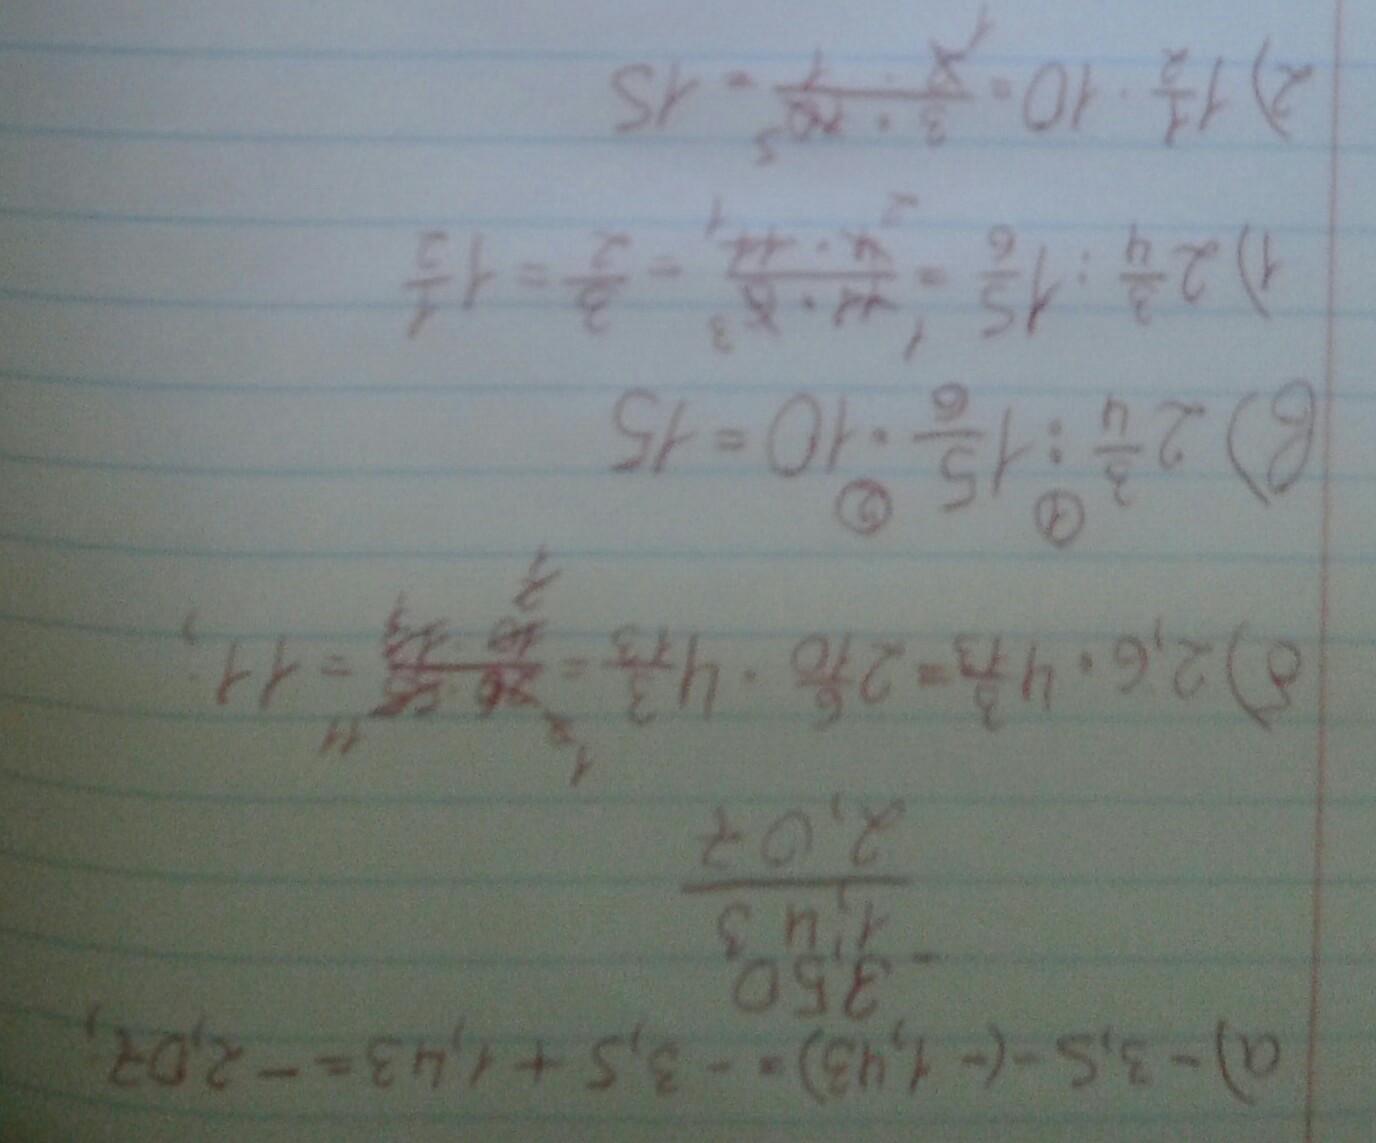 а) -3,5 - (-1,43) = -3,5 + 1,43 = -2,07;
- 3,50
1,43
2,07
б) 2,6 · 4 3/13 = 2 6/10 · 4 3/13 = 26 · 55 / 10 · 13 = 11;
в) 2 3/4 : 1 5/6 · 10 = 15
1) 2 3/4 : 1 5/6 = 11 · 6 / 4 · 11 = 3/2 = 1 1/2
2) 1 1/2 · 10 = 3 · 10 / 2 · 1 = 15